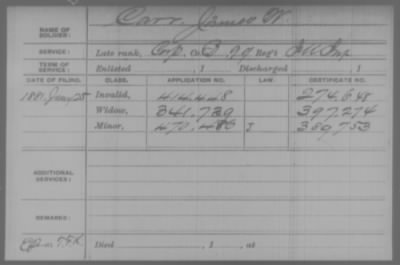 NAME OF SOLDIER: Carr, James W.
SERVICE: Late rank, Corp. Co. B. 99 Reg't Inf
TERM OF SERVICE: Enlisted , 1 Discharged , 1
DATE OF FILING. CLASS. APPLICATION NO. LAW. CERTIFICATE NO.
1881 Jany 25 Invalid, 414.448 274.848
Widow, 341.739 397.274
Minor, 472.486 J 389.753
ADDITIONAL SERVICES:
REMARKS:
Died , 1 , at